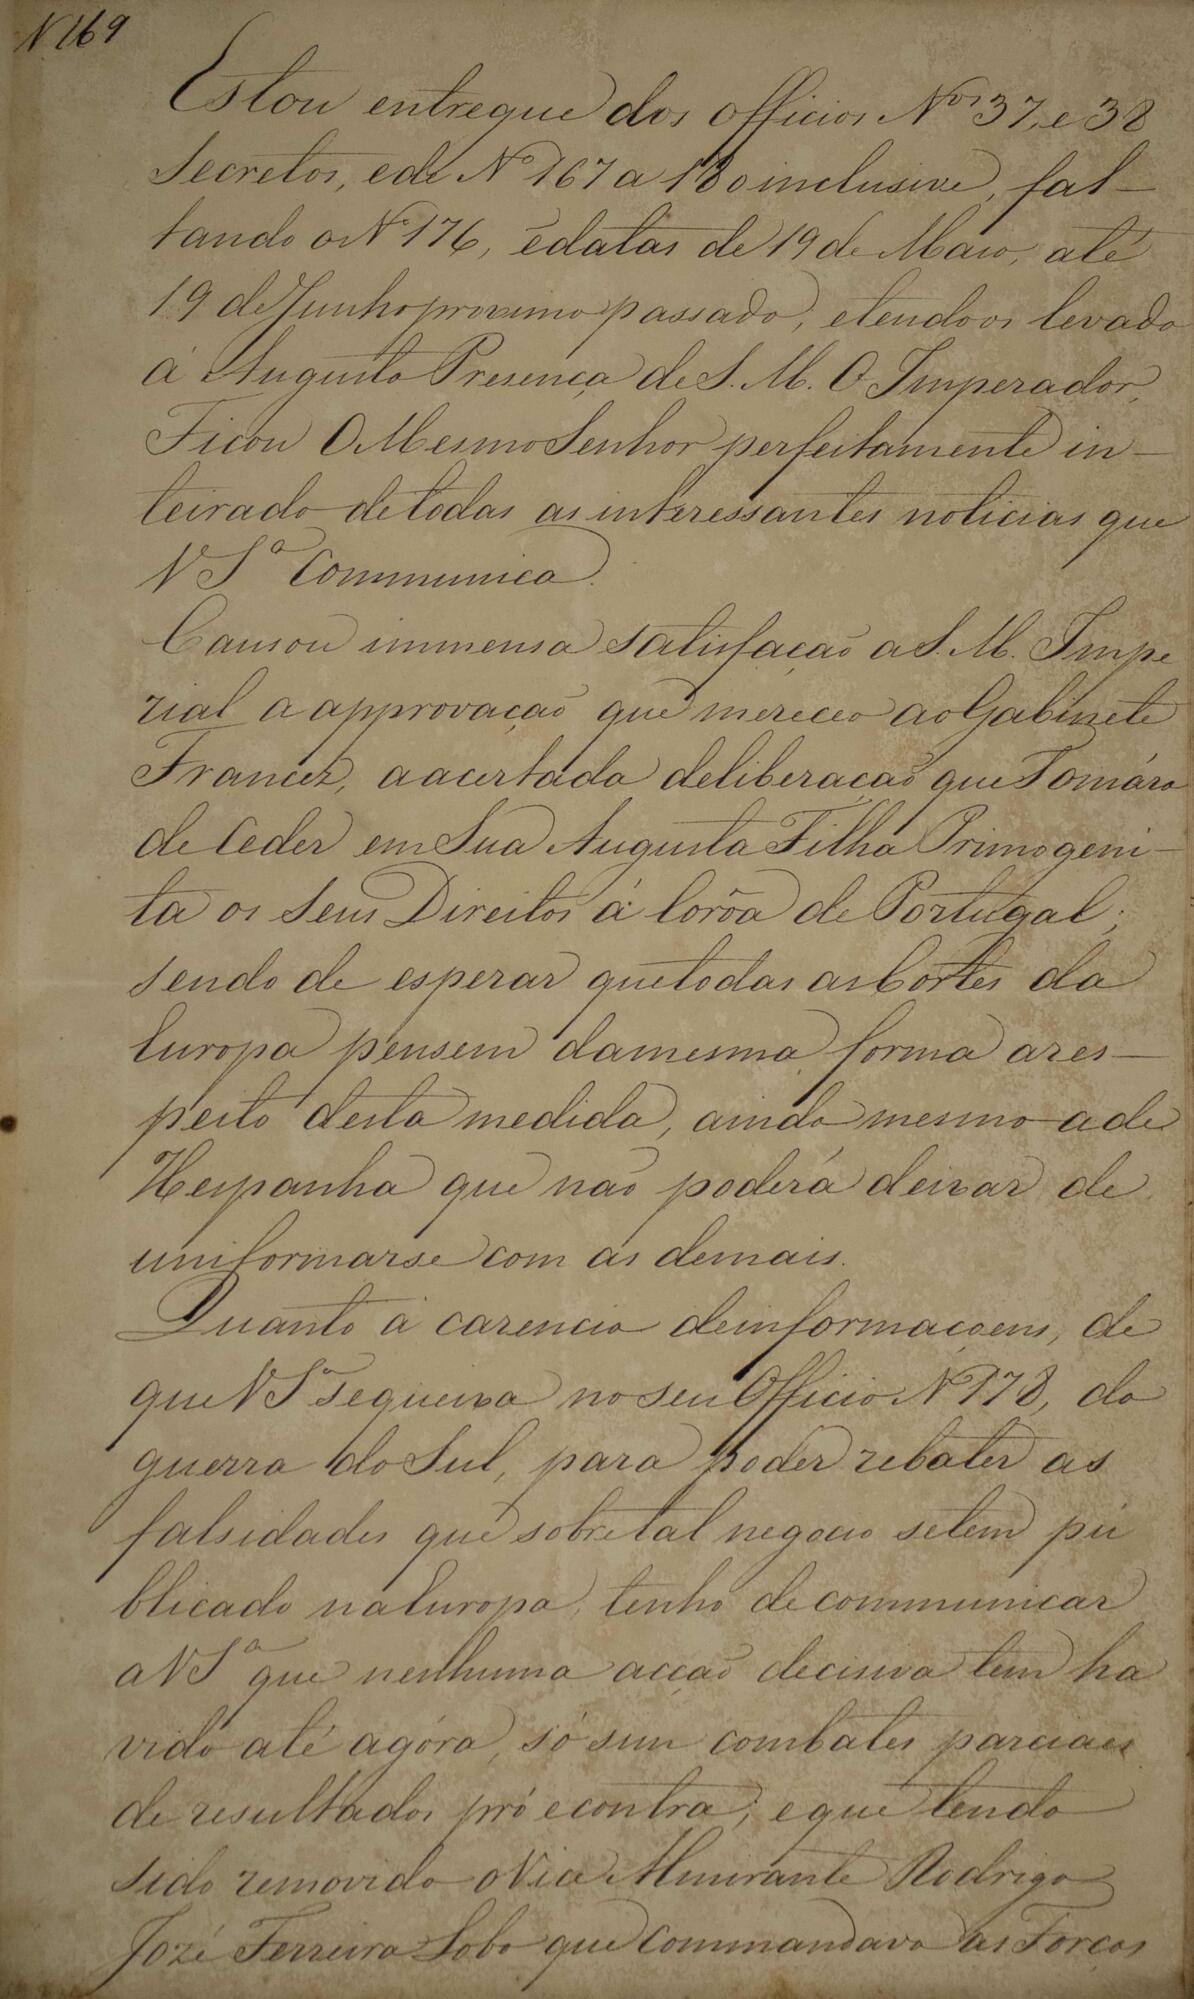 N 169
Estou entregue dos officios Nos 37, e 38
Secretos, e de No 167 a 180 inclusive, fal-
tando o No 176, e datas de 19 de Maio, até
19 de Junho proximo passado, e tendo os levado
á Augusta Presença de S. M. O Imperador,
Ficou O Mesmo Senhor perfeitamente in-
teirado de todas as interessantes noticias que
V Sa Communica.
Causou immensa satisfação a S. M. Impe
rial a approvação que mereceo ao Gabinete
Francez, a acertada deliberação que Tomára
de Ceder em Sua Augusta Filha Primogeni-
ta os Seus Direitos á Corôa de Portugal;
sendo de esperar que todas as Cortes da
Europa pensem da mesma forma a res-
peito desta medida, ainda mesmo a de
Hespanha que não poderá deixar de
uniformarse com as demais.
Quanto á carencia de informaçoens, de
que V Sa se queixa no seu Officio No 178, da
guerra do Sul, para poder rebater as
falsidades que sobre tal negocio se tem pu
blicado na Europa, tenho de communicar
a V Sa que nenhuma acção decisiva tem ha
vido até agóra, só sim combates parciaes
de resultados pró e contra; e que tendo
sido removido o Vice Almirante Rodrigo
Jozé Ferreira Lobo que Commandava as Forças